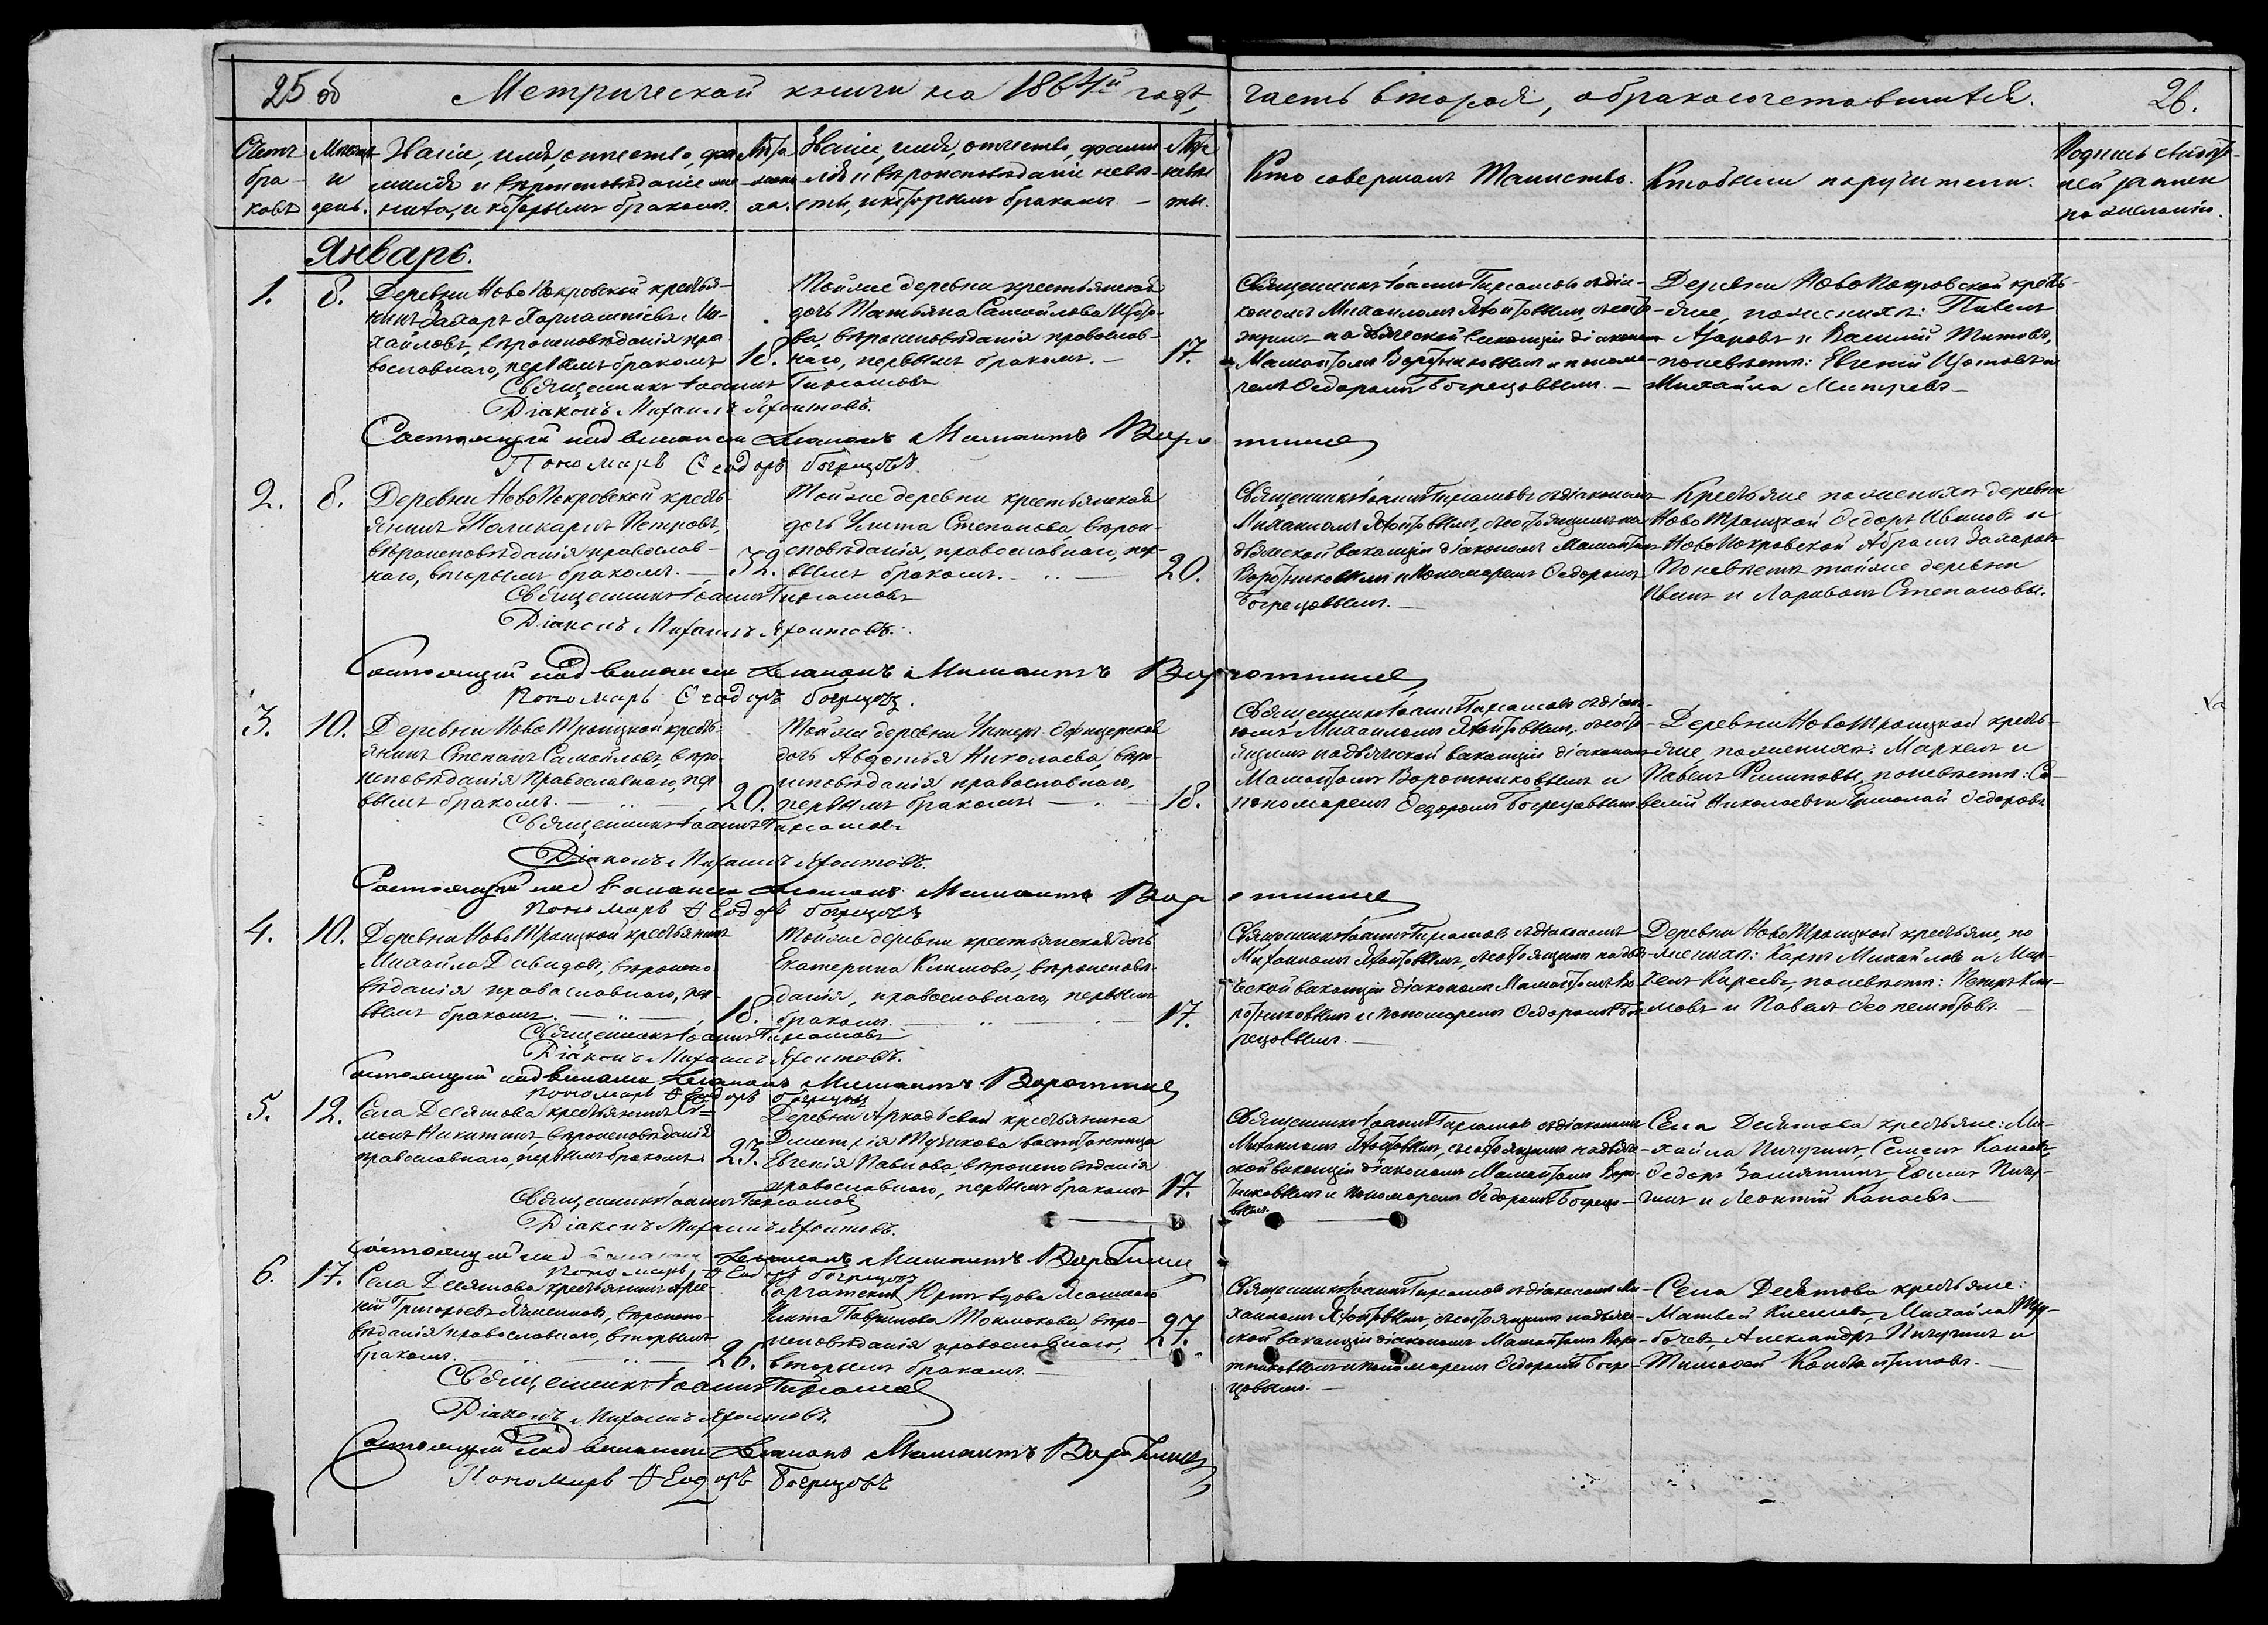 25 об
Метрической книги на 1864й годъ,
часть вторая, о бракосочетавшихся.
26.
Счетъ бра-ковъ
Мѣсяцъ и день.
Званіе, имя, отчество, фа-
милія и вѣроисповѣданіе же-
ниха, и которымъ бракомъ.
Лѣта жени-ха.
Званіе, имя, отчество, фами-
лія и вѣроисповѣданіе невѣ-
сты, и которымъ бракомъ
Лѣта невѣс-ты.
Кто совершалъ Таинство.
Кто были поручители.
Подпись свидѣте-
лей записи
по желанію.
Январь.
1.
8.
Деревни Ново Покровской крестья-
нинъ Захаръ Харлампіевъ Ми-
хайловъ, вѣроисповѣданія пра-
вославнаго, первымъ бракомъ
18.
Тойже деревни крестьянская
дочь Татьяна Самойлова
ва, вѣроисповѣданія православ-
наго, первымъ бракомъ.
17.
Священникъ Іоаннъ съ діа-
кономъ Михаиломъ
на дьяческой вакансіи діакономъ
Мамонтомъ Воротниковымъ и понома-
ремъ Ѳедоромъ Богрецовымъ.
Деревни Ново Покровской кресть-
яне, по женихѣ: Павелъ
Азаровъ и Василій Титовъ,
по невѣстѣ: Евгеній
Михайла
Священникъ Іоаннъ
Діаконъ Михаилъ
Состоящій на вакансіи Діаконъ Мамонтъ Воротников
Пономарь Ѳеодоръ Богрецовъ.
2.
8.
Деревни Ново Покровской кресть-
янинъ Поликарпъ Петровъ,
вѣроисповѣданія православ-
наго, вторымъ бракомъ.
32.
Тойже деревни крестьянская
дочь Улита Степанова, вѣрои-
сповѣданія, православнаго, пер-
вымъ бракомъ.
20.
Священникъ Іоаннъ съ діакономъ
Михаиломъ, состоящимъ на
дьяческой вакансіи діакономъ Мамонтомъ
Воротниковымъ и Пономаремъ Ѳедоромъ
Богрецовымъ.
Крестьяне по женихѣ деревни
Ново Троицкой Ѳедоръ Ивановъ и
Ново Покровской Абрамъ Захаровъ
По невѣстѣ тойже деревни
Иванъ и Ларивонъ Степановы.
Священникъ Іоаннъ
Діаконъ Михаилъ
Состоящій на вакансіи Діаконъ Мамонтъ Воротников
Пономарь Ѳеодоръ Богрецовъ.
3.
10.
Деревни Ново Троицкой кресть-
янинъ Степанъ Самойловъ, вѣро-
исповѣданія Православнаго, пер-
вымъ бракомъ.
20.
Тойже деревни Унтеръ-Офицерская
дочь Авдотья Николаева, вѣро-
исповѣданія православнаго,
первымъ бракомъ.
18.
Священникъ Іоаннъ съ діако-
номъ Михаиломъ, состо-
ящимъ на дьяческой вакансіи діакономъ
Мамонтомъ Воротниковымъ и
пономаремъ Ѳедоромъ Богрецовымъ
Деревни Ново Троицкой кресть-
яне, по женихѣ: Маркелъ и
Павелъ Филиповы, по невѣстѣ: Са-
велій Николаевъ и Ермолай Ѳедоровъ
Священникъ Іоаннъ
Діаконъ Михаилъ
Состоящій на вакансіи Діаконъ Мамонтъ Воротников
Пономарь Ѳеодоръ Богрецовъ
4.
10.
Деревни Ново Троицкой крестьянинъ
Михайла Давидовъ, вѣроиспо-
вѣданія православнаго, пер-
вымъ бракомъ.
18.
Тойже деревни крестьянская дочь
Екатерина Климова, вѣроисповѣ-
данія, православнаго, первымъ
бракомъ.
17.
Священникъ Іоаннъ съ діакономъ
Михаиломъ, состоящимъ на дья-
ческой вакансіи діакономъ Мамонтомъ Во-
ротниковымъ и пономаремъ Ѳедоромъ Бог-
рецовымъ.
Деревни Ново Троицкой крестьяне, по
женихѣ: Карпъ Михайловъ и Мар-
келъ Киреевъ, по невѣстѣ: Петръ Кли-
мовъ и Павелъ
Священникъ Іоаннъ
Діаконъ Михаилъ
Состоящій на вакансіи Діаконъ Мамонтъ Воротников
Пономарь Ѳеодоръ Богрецовъ
5.
12.
Села Десятова крестьянинъ
Никитинъ, вѣроисповѣданія
православнаго, первымъ бракомъ
23.
Деревни Аркадьевой крестьянина
Димитрія воспитанница
Евгенія Павлова, вѣроисповѣданія
православнаго, первымъ бракомъ
17.
Священникъ Іоаннъ съ діакономъ
Михаиломъ, состоящимъ на дьяче-
ской вакансіи діакономъ Мамонтомъ Воро-
тниковымъ и пономаремъ Ѳедоромъ Богрецо-
вымъ.
Села Десятова крестьяне: Ми-
хайла Пичугинъ, Семенъ Канаевъ,
Ѳедоръ Замятинъ, Ефимъ Пичу-
гинъ и Леонтій Канаевъ
Священникъ Іоаннъ
Діаконъ Михаилъ
Состоящій на вакансіи Діаконъ Мамонтъ Воротников
Пономарь Ѳеодоръ Богрецовъ
6.
17.
Села Десятова крестьянинъ
Григорьевъ, вѣроиспо-
вѣданія православнаго, вторымъ
бракомъ.
26.
вдова
Гаврилова Токмакова, вѣро-
исповѣданія православнаго,
вторымъ бракомъ.
27.
Священникъ Іоаннъ съ діакономъ Ми-
хаиломъ, состоящимъ на дьяче-
ской вакансіи діакономъ Мамонтомъ Воро-
тниковымъ и пономаремъ Ѳедоромъ Богре-
цовымъ.
Села Десятова крестьяне:
Матвей, Михайла
Александръ Пичугинъ и
Тимофей Константиновъ.
Священникъ Іоаннъ
Діаконъ Михаилъ
Состоящій на вакансіи Діаконъ Мамонтъ Воротников
Пономарь Ѳеодоръ Богрецовъ